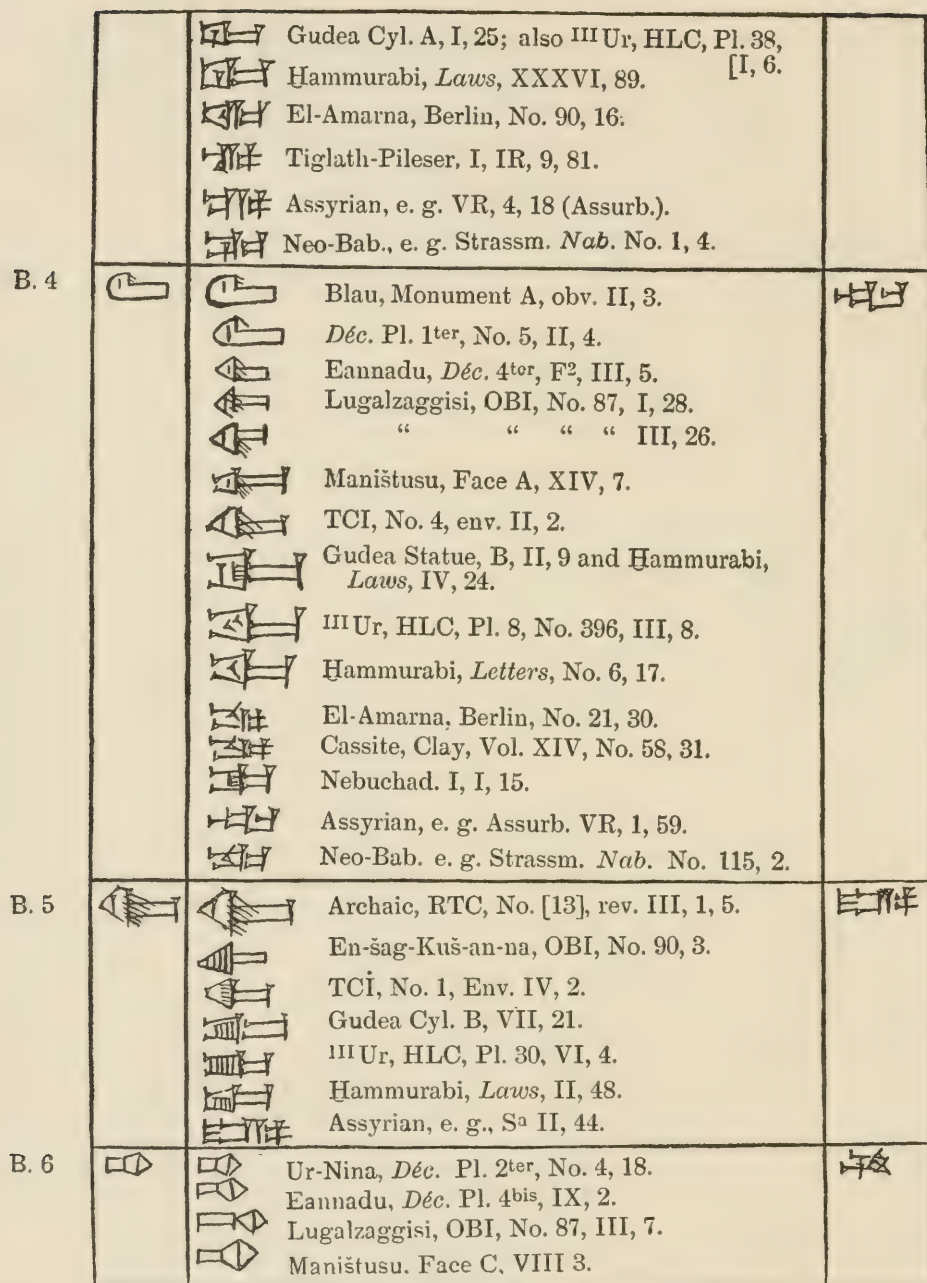 Gudea Cyl. A, I, 25; also III Ur, HLC, Pl. 38, [I, 6.
Ḫammurabi, Laws, XXXVI, 89.
El-Amarna, Berlin, No. 90, 16.
Tiglath-Pileser, I, IR, 9, 81.
Assyrian, e. g. VR, 4, 18 (Assurb.).
Neo-Bab., e. g. Strassm. Nab. No. 1, 4.
B. 4
Blau, Monument A, obv. II, 3.
Déc. Pl. 1ter, No. 5, II, 4.
Eannadu, Déc. 4ter, F², III, 5.
Lugalzaggisi, OBI, No. 87, I, 28.
“ “ “ “ III, 26.
Maništusu, Face A, XIV, 7.
TCI, No. 4, env. II, 2.
Gudea Statue, B, II, 9 and Ḫammurabi,
Laws, IV, 24.
III Ur, HLC, Pl. 8, No. 396, III, 8.
Ḫammurabi, Letters, No. 6, 17.
El-Amarna, Berlin, No. 21, 30.
Cassite, Clay, Vol. XIV, No. 58, 31.
Nebuchad. I, I, 15.
Assyrian, e. g. Assurb. VR, 1, 59.
Neo-Bab. e. g. Strassm. Nab. No. 115, 2.
B. 5
Archaic, RTC, No. [13], rev. III, 1, 5.
En-šag-Kuš-an-na, OBI, No. 90, 3.
TCİ, No. 1, Env. IV, 2.
Gudea Cyl. B, VII, 21.
III Ur, HLC, Pl. 30, VI, 4.
Ḫammurabi, Laws, II, 48.
Assyrian, e. g., Sa II, 44.
B. 6
Ur-Nina, Déc. Pl. 2ter, No. 4, 18.
Eannadu, Déc. Pl. 4bis, IX, 2.
Lugalzaggisi, OBI, No. 87, III, 7.
Maništusu. Face C, VIII 3.